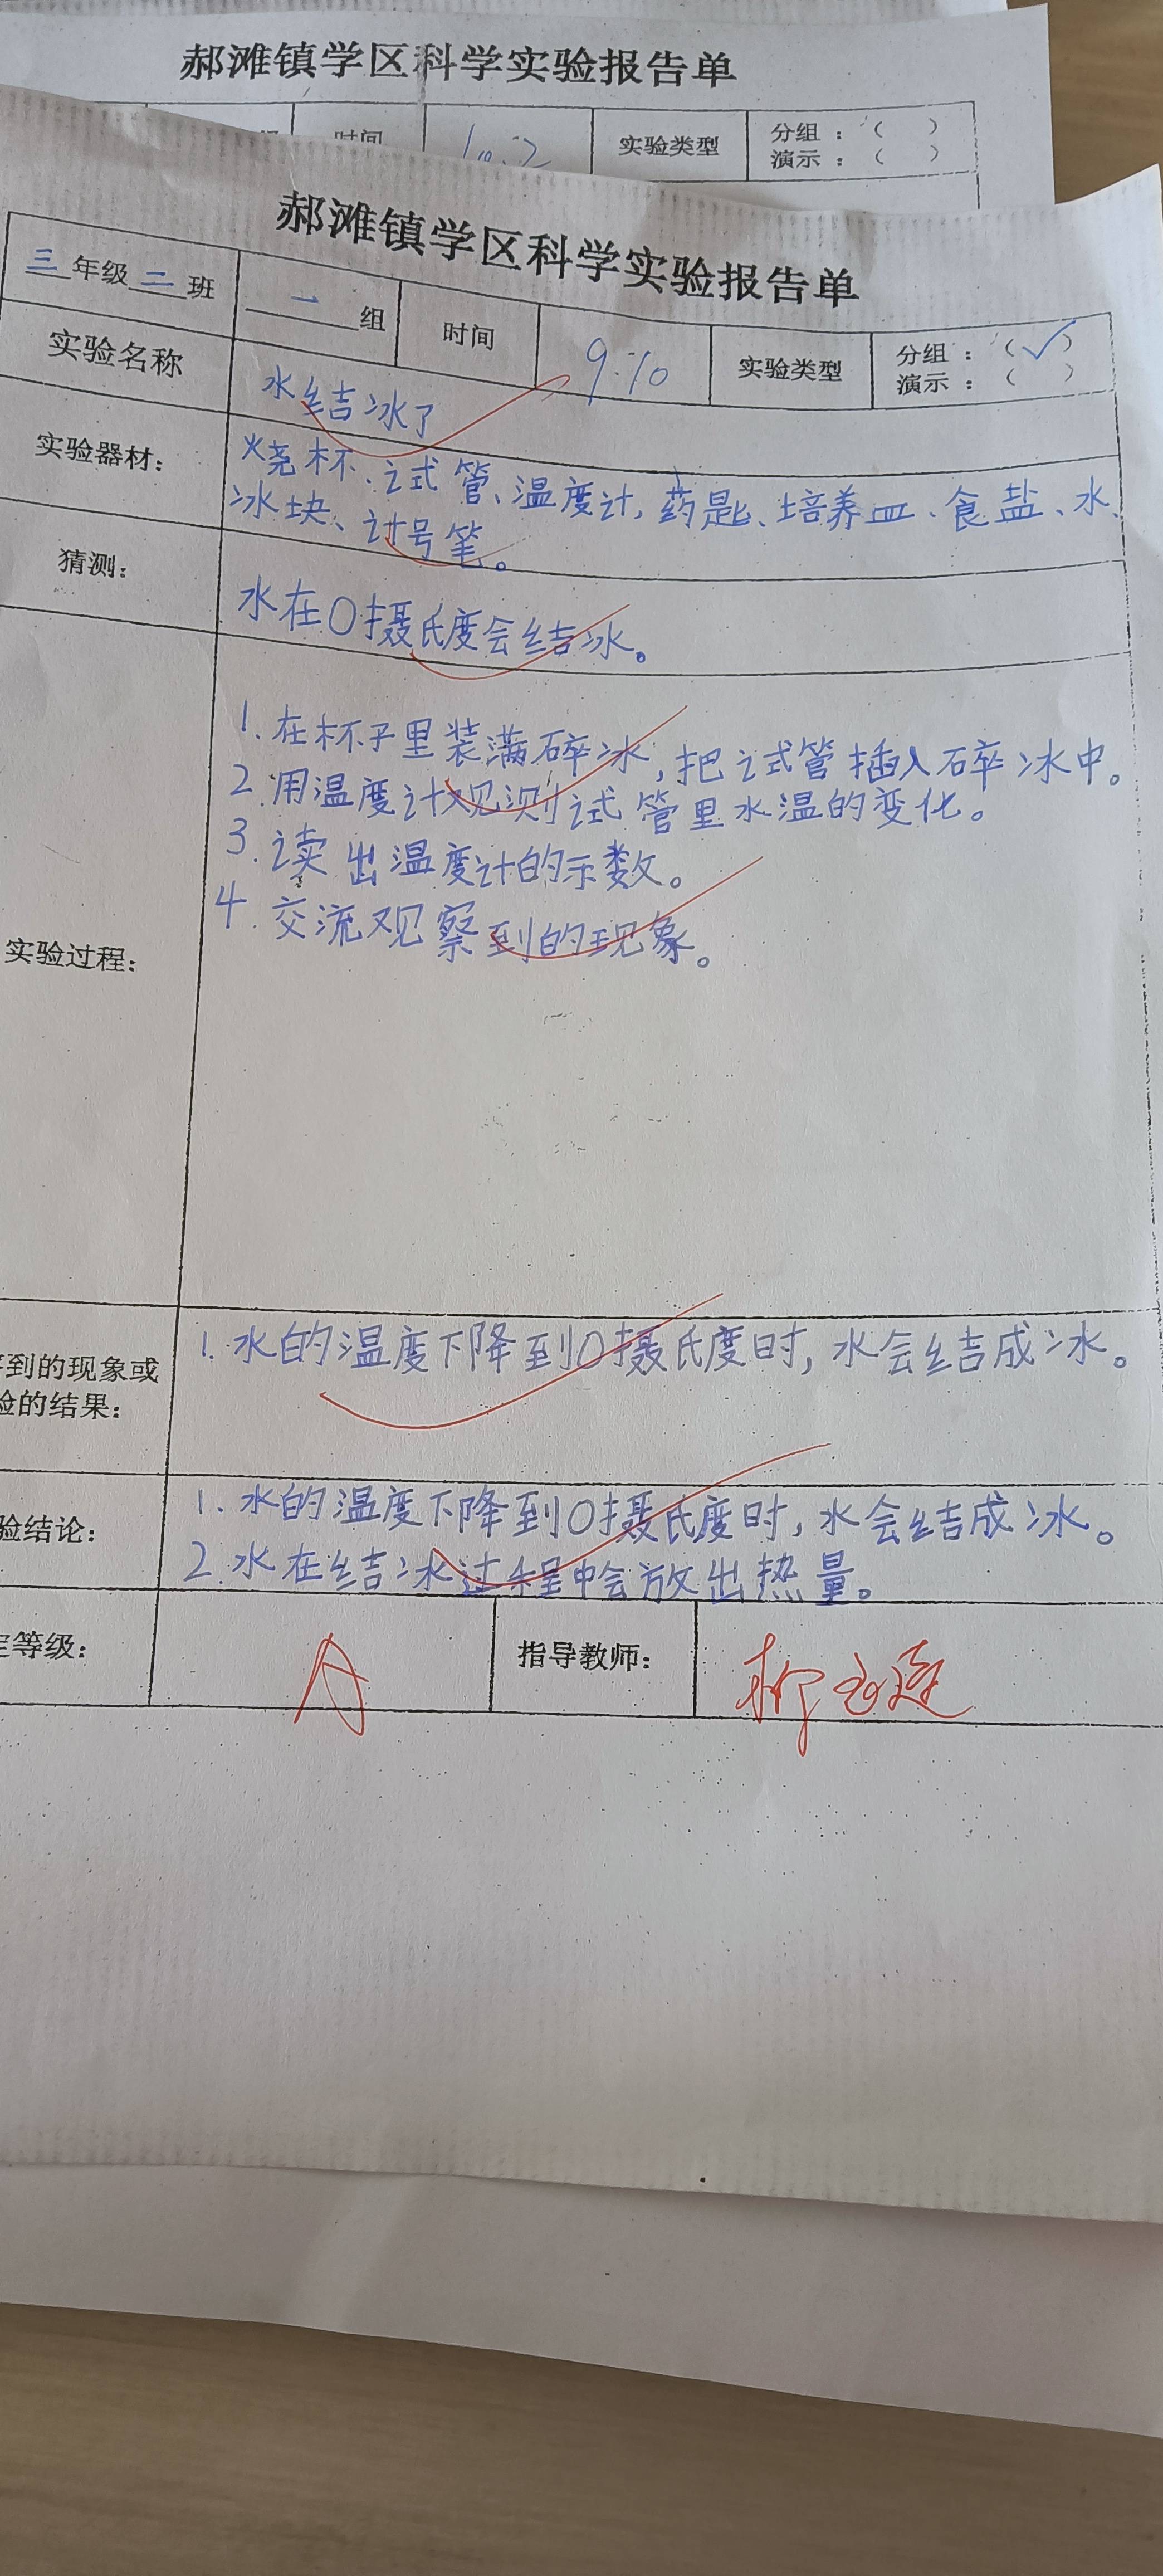 郝滩镇学区科学实验报告单
时间 10.2 实验类型 分组：（ ）
演示：（ ）
郝滩镇学区科学实验报告单
三年级二班 一组 时间 9.10 实验类型 分组：（✓）
演示：（ ）
实验名称 水结冰了
实验器材： 烧杯、试管、温度计，药匙、培养皿、食盐、水、
冰块、计号笔。
猜测： 水在0摄氏度会结冰。
实验过程：
1.在杯子里装满碎冰，把试管插入碎冰中。
2.用温度计观测试管里水温的变化。
3.读出温度计的示数。
4.交流观察到的现象。
到的现象或
验的结果：
1.水的温度下降到0摄氏度时，水会结成冰。
验结论：
1.水的温度下降到0摄氏度时，水会结成冰。
2.水在结冰过程中会放出热量。
定等级： A 指导教师： 柳